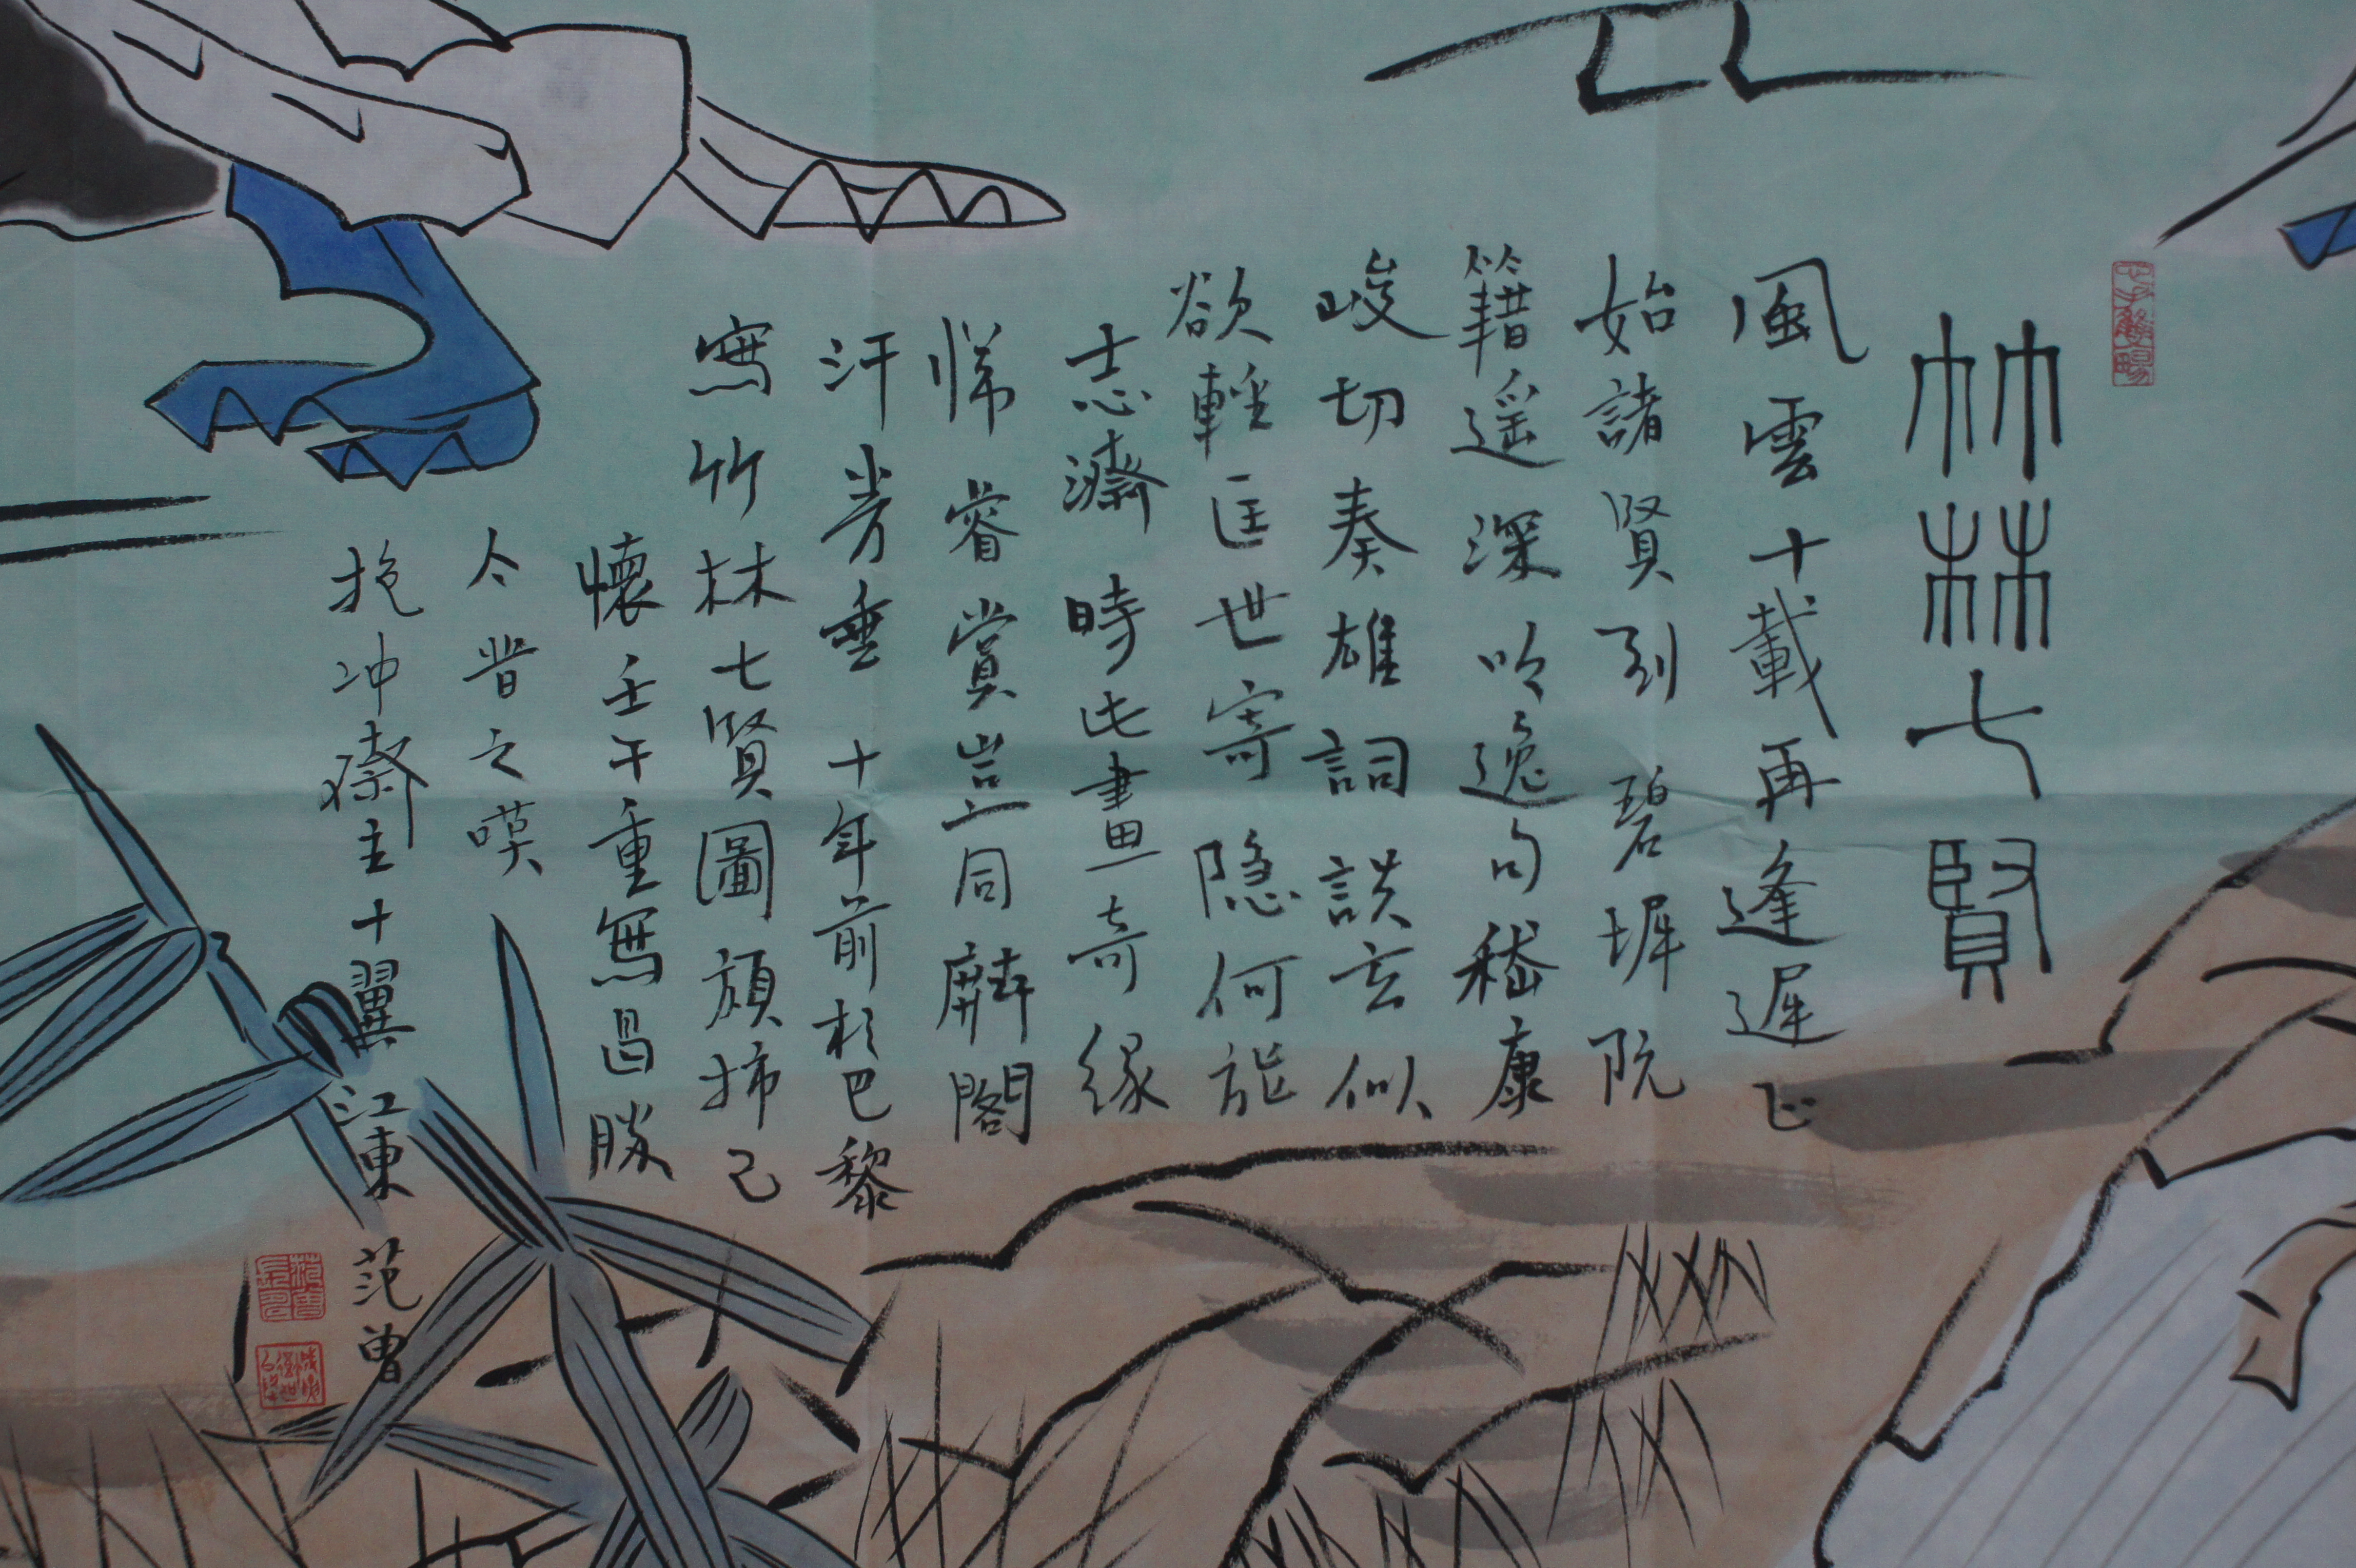 竹林七賢
風雲十載再逢遲正
始諸賢到碧墀阮
籍遥深吟逸句嵇康
峻切奏雄詞談玄似
欲輕匡世寄隐何能
志濟時此畫奇緣
懷睿賞豈同麟閣
汗芳垂十年前於巴黎
寫竹林七賢圖頗抒己
懷壬午重寫曷勝
今昔之嘆
抱冲齋主十翼江東范曾